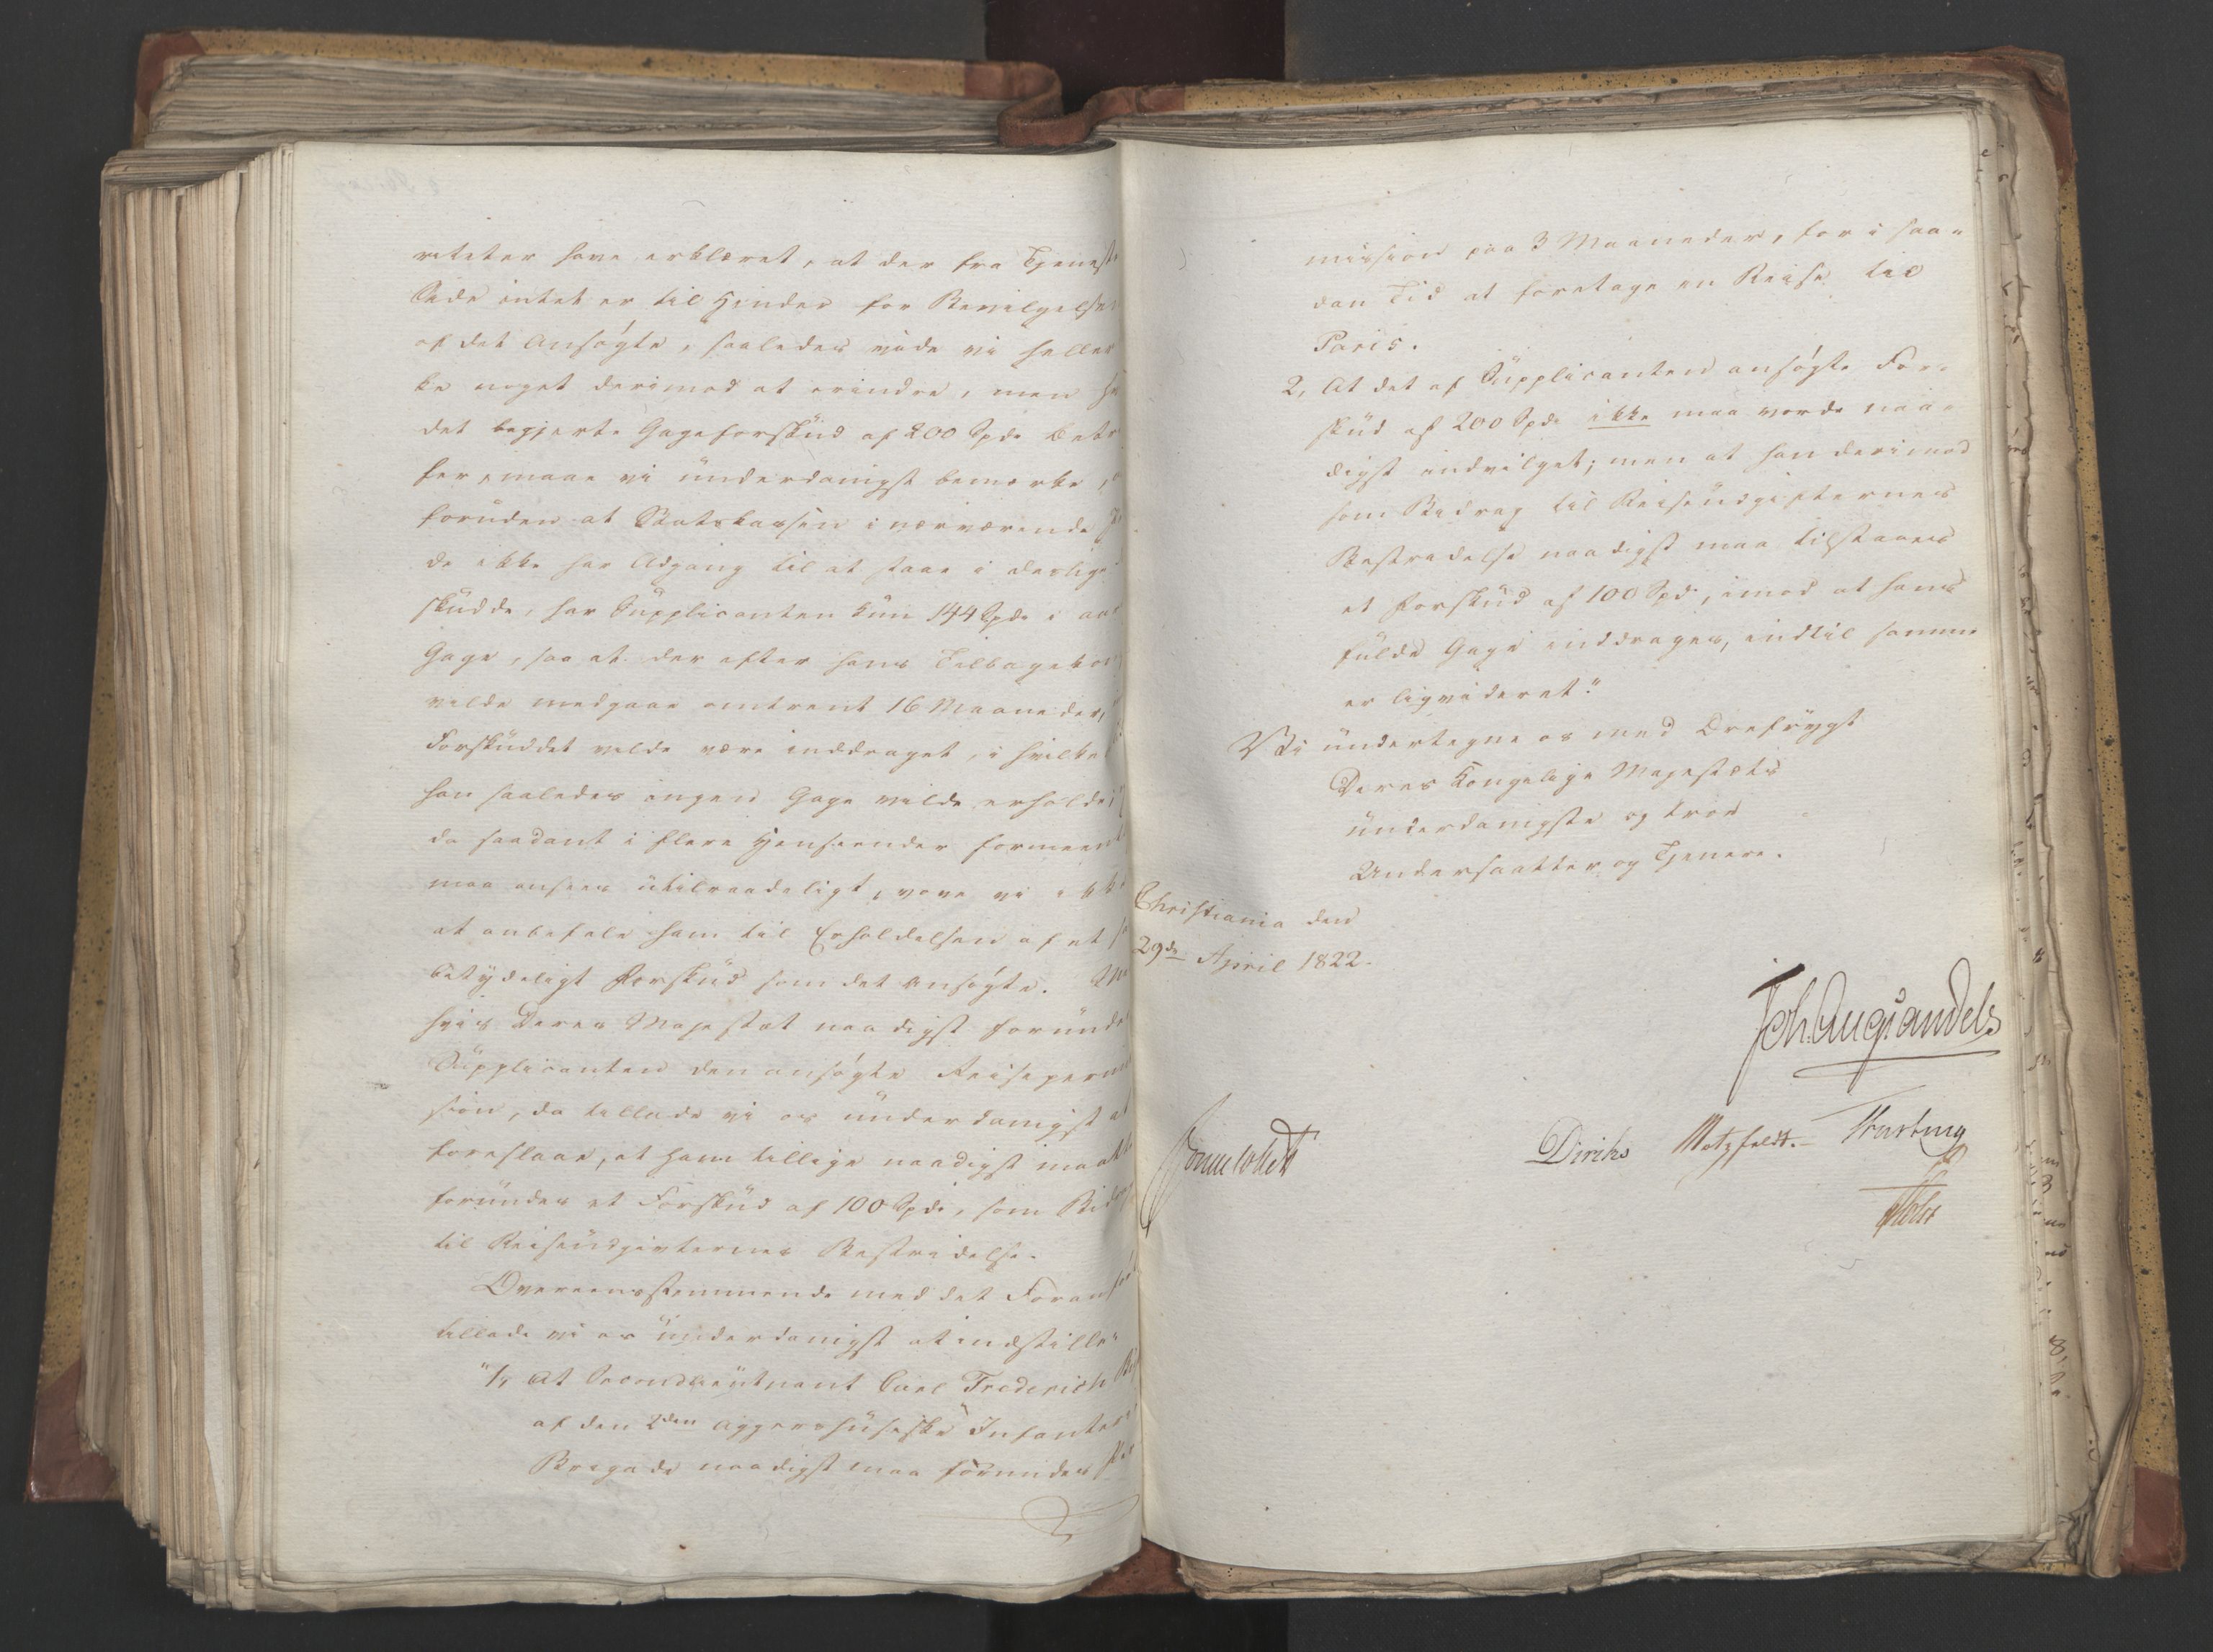 riteter have erklæret, at der fra Tjeneste
Side intet er til Hinder for Bevilgelsen
af det Ansøgte, saaledes vide vi heller
ke noget derimod at erindre, men
det begjerte Gageforskud af 200 Spd.
fer, maae vi underdanigst bemærke,
foruden at Statskassen i nærværende
de ikke har Adgang til at staae i deslige
skudde, har Supplicanten kun 144 Spd. i
Gage, saa at der efter hans Tilbagekom
vilde medgaae omtrent 16 Maaneder,
Forskuddet vilde være inddraget, i hvilken
han saaledes ingen Gage vilde erholde;
da saadant i flere Henseender formeent
maa ansees utilraadeligt, vove vi ikke
at anbefale ham til Erholdelsen af et
betydeligt Forskud som det ansøgte.
hvis Deres Majestæt naadigst forunder
Supplicanten den ansøgte Reiseperm
sion, da tillade vi os underdanigst at
foreslaae, at ham tillige naadigst maatte
forundes et Forskud af 100 Spd., som Bidrag
til Reiseudgivternes Bestridelse.
Overeensstemmende med det Foranf
tillade vi os underdanigst at indstille:
"1, At Secondlieutnant Carl Frederich
af den 2den Aggershusiske Infanterie
Brigade naadigst maa forundes Per
mission paa 3 Maaneder, for i saa-
dan Tid at foretage en Reise til
Paris.
2, At det af Supplicanten ansøgte For-
skud af 200 Spd. ikke maa vorde naa-
digst indvilget; men at han derimod
som Bidrag til Reiseudgifternes
Bestridelse naadigst maa tilstaaes
et Forskud af 100 Spd., imod at hans
fulde Gage inddrages, indtil samme
er ligvideret."
Vi undertegne os med Ærefrygt
Deres Kongelige Majestæts
underdanigste og troe
Undersaatter og Tjenere.
Christiania den
29de April 1822.
Joh. Aug. Sandels
Sommerhielm Diriks Motzfeldt. Krebs
Holst